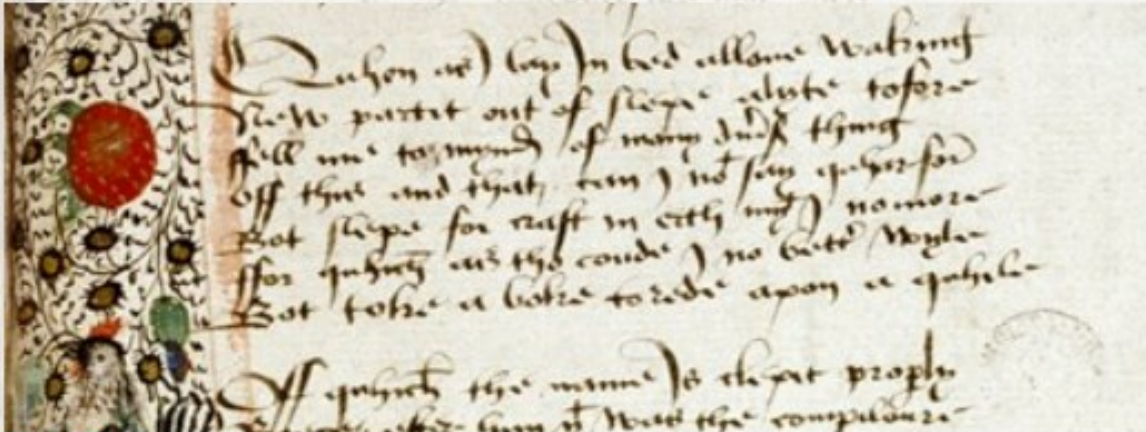 Quhen as I lay In bed allone waking
New partit out of slepe alyte tofore
ffell me to mynd of many diuerse thing
off this and that can I noᵗ say quharfore
Bot slepe for craft in erth myᵗ I no more
ffor quhich as tho coude I no bettir Wyle
Bot toke a boke to rede apon a quhile
Off quhich the name Is clepit properly
efter him ᵗ was the compiloure